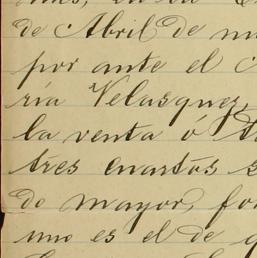 de Abril de m
por ante el
ría Velasquez,
la venta ó t
tres cuartos s
do mayor, for
uno es el de q